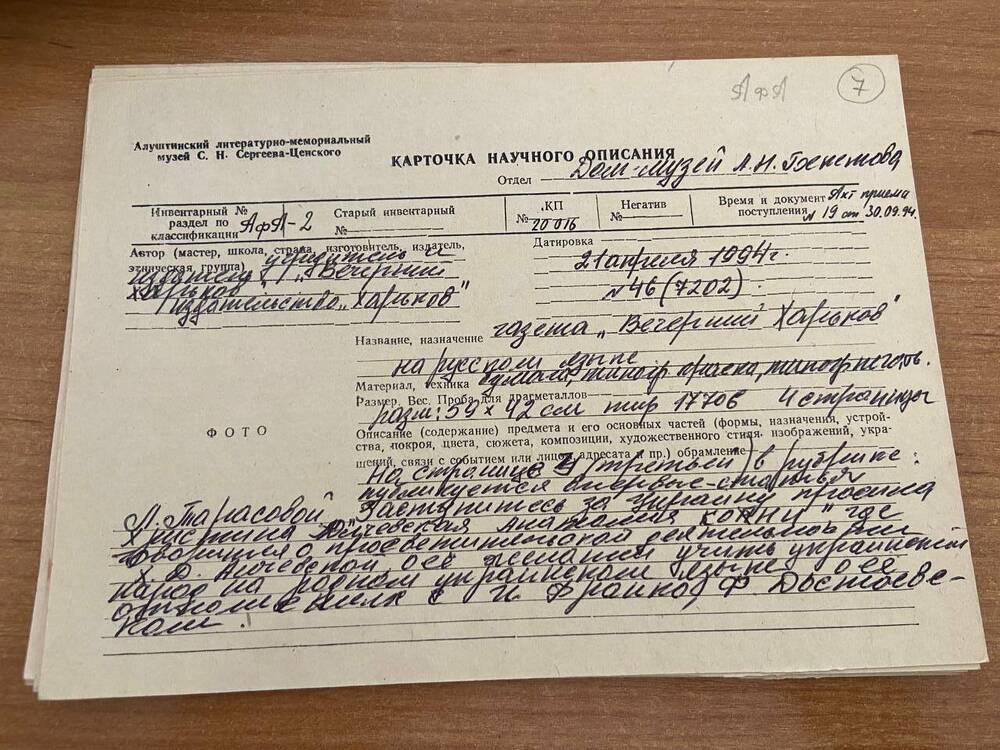 АфА 7
Алуштинский литературно-мемориальный
музей С. Н. Сергеева-Ценского
КАРТОЧКА НАУЧНОГО ОПИСАНИЯ
Отдел Дом-музей А.Н.
Инвентарный №
раздел по
классификации АфА-2
Старый инвентарный
№
КП
№ 20016
Негатив
№
Время и документ Акт приема
поступления N 19 от 30.09.94.
Автор (мастер, школа, страна, изготовитель, издатель,
этническая группа) учредитель и
издатель „Вечерний
Харьков"
издательство „Харьков"
Датировка
21 апреля 1994г.
N 46 (7202)
Название, назначение газета „Вечерний Харьков"
на русском языке
Материал, техника бумага, типогр краска, типогр
Размер. Вес. Проба для драгметаллов
разм: 59 × 42 см тир 17706 4 страницы
ФОТО
Описание (содержание) предмета и его основных частей (формы, назначения, устрой-
ства, покроя, цвета, сюжета, композиции, художественного стиля, изображений, укра-
шений, связи с событием или лицом, адресата и пр.) обрамление
На странице 3 (третьей) в рубрике:
публикуется впервые - статья
Л. Тарасовой „Заступитесь за Украину просила
Христина Алчевская" где
говорится о просветительской деятельности
Х. Д. Алчевской, о её желании учить украинский
народ на родном украинском языке, о её
с И Франко, Ф Достоевс-
ким.